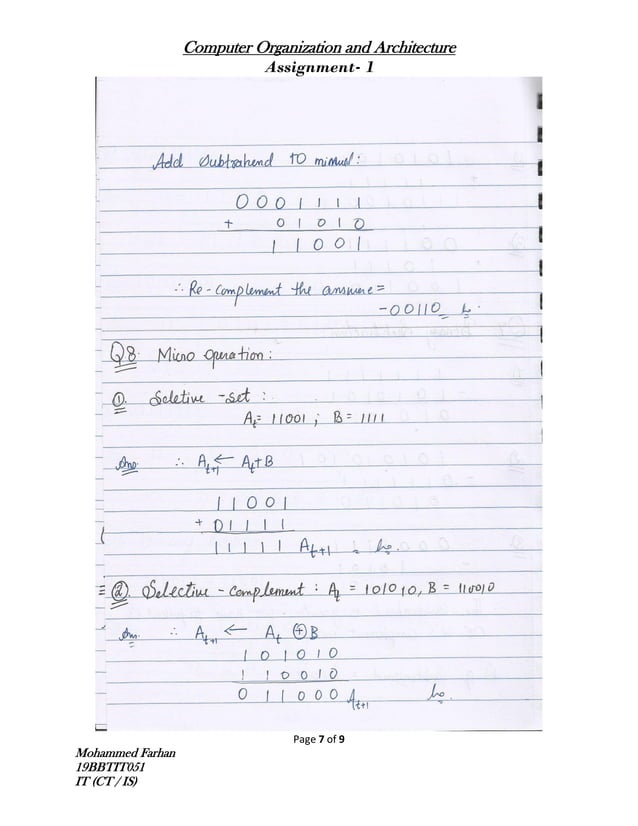 Computer Organization and Architecture
Assignment- 1
Add Subtrahend TO minus:
0 0 0 1 1 1 1
+ 0 1 0 1 0
1 1 0 0 1
∴ Re-complement the answere =
-00110
Q8. Micro operation:
①. Seletive -set :
At= 11001 ; B= 1111
Ans. ∴ At+1 ← At+B
1 1 0 0 1
+ 0 1 1 1 1
1 1 1 1 1 At+1
②. Selective-complement : At = 101010, B = 110010
Ans. ∴ At+1 ← At ⊕ B
1 0 1 0 1 0
1 1 0 0 1 0
0 1 1 0 0 0 At+1
Page 7 of 9
Mohammed Farhan
19BBTIT051
IT (CT / IS)